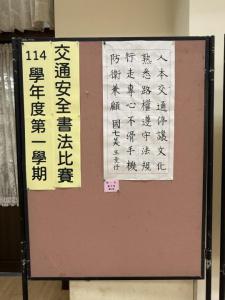 114
學年度第一學期
交通安全書法比賽
人本交通停讓文化
熟悉路權遵守法規
行走專心不滑手機
防衛兼顧 國七美